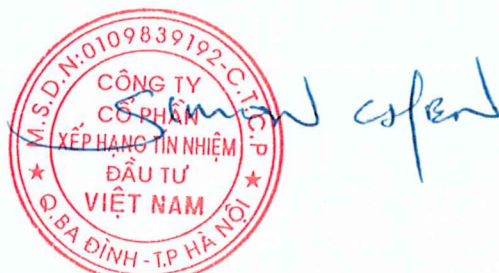 M.S.D.N:0109839192-C.T.C.P
CÔNG TY
CỔ PHẦN
XẾP HẠNG TÍN NHIỆM
ĐẦU TƯ
VIỆT NAM
Q.BA ĐÌNH - T.P HÀ NỘI
SIMON CHEN